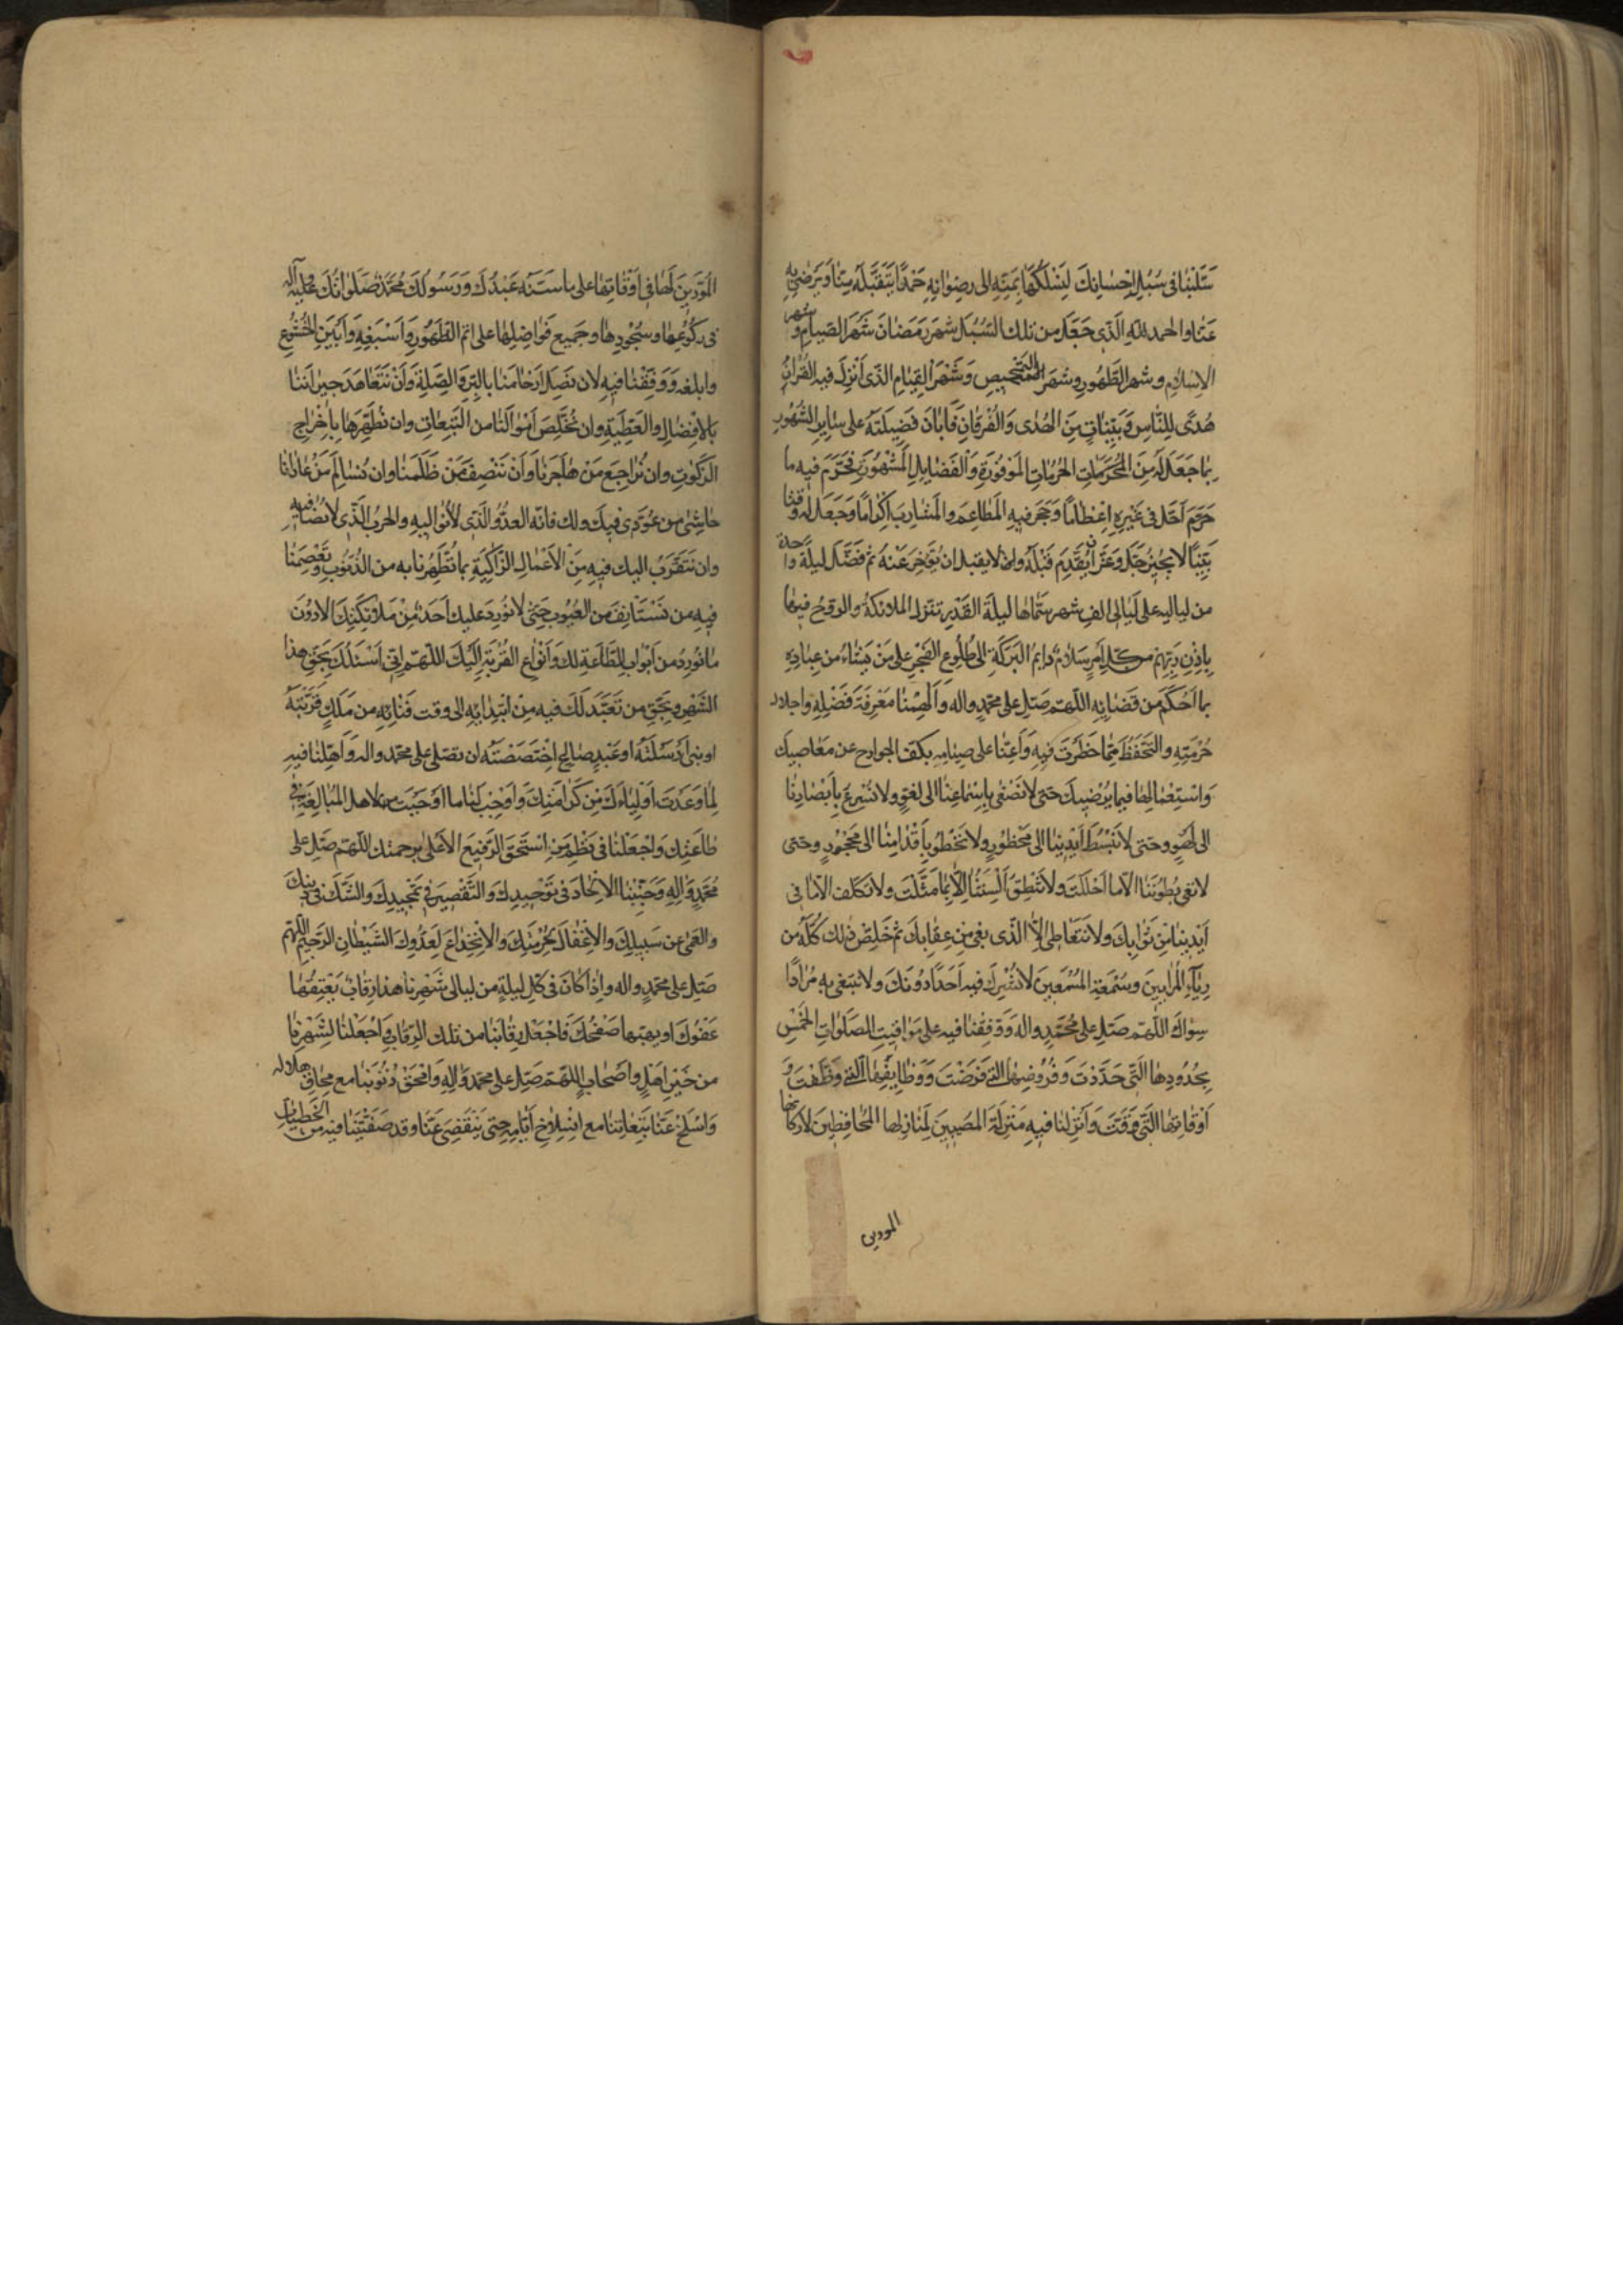 سَبَّلَنٰا فى سُبُلِ اِحسٰانِكَ لِنَسْلُكَهٰا بِمَنِّهِ الى رِضوٰانِهِ حَمْدًا يَتَقَبَّلُهُ مِنّٰا وَيَرْضٰى بِهِ
عَنّٰا والحمد للهِ الَّذى جَعَلَ من تلك السُّبُلِ شهرَ رَمَضٰانَ شَهْرَ الصّيٰامِ و شهر
الاِسْلاٰمِ وشهر الطَّهُورِ وشَهرَ التمحيصِ وَشَهْرَ القِيٰامِ الذّى اُنْزِلَ فيه القُرْاٰنُ
هُدًى لِلنّٰاسِ وَبَيِّنٰاتٍ مِنَ الهُدٰى وَالفُرْقٰانِ فَاَبٰانَ فَضِيلَتَهُ على سٰايِرِ الشُّهُورِ
بِمٰا جَعَلَ لَهُ مِنَ الحُرُمٰاتِ المَوْفُورَةِ وَالفَضٰايِلِ المَشْهُورَةِ فحَرَّمَ فيه ما
حَرَّمَ اَحَلَّ فى غَيْرِهِ اِعْظٰامًا وَحَجَرَ فيهِ المَطٰاعِمَ والمَشٰارِبَ اِكْرٰامًا وَجَعَلَ لَهُ وقتا
بَيِّنًا لا يُجِيزُ جَلَّ وَعَزَّ ان يُقَدَّمَ قَبْلَهُ ولا يقبل ان يُؤَخَّرَ عَنْهُ ثم فَضَّلَ ليلةً واحدة
من لياليهِ على لَيٰالى الفِ شهر سَمّٰاهٰا ليلَةَ القَدْرِ تنزل الملائكة والروح فيها
بِاِذْنِ رَبِّهِم من كلِّ اَمرٍ سَلاٰمٌ دٰايِمُ البَرَكَةِ الى طُلُوعِ الفَجْرِ على مَنْ يَشٰاءُ من عِبٰادِهِ
بما اَحْكَمَ من قَضٰائِهِ اللّهمّ صَلِّ على محمّدٍ واله وَاَلْهِمْنٰا مَعْرِفَةَ فَضْلِهِ واجلال
حُرْمَتِهِ والتَّحَفُّظَ مِمّٰا حَظَرْتَ فِيهِ وَاَعِنّٰا على صِيٰامِهِ بكَفِّ الجوارح عن مَعٰاصِيكَ
وَاسْتِعْمٰالِهٰا فيما يُرْضِيكَ حَتى لا نُصْغى بِاِسْمٰاعِنٰا الى لَغوٍ ولا نُسْرِعَ بِاَبْصٰارِنٰا
الى لَهْوٍ وحَتى لا نَبْسُطَ اَيْدِيَنٰا الى مَحْظُورٍ ولا نَخْطُوَ بِاَقْدٰامِنٰا الى مَحْجُورٍ وحَتى
لا تعى بُطُونُنٰا اِلاّ ما اَحْلَلْتَ ولا تَنْطِقَ اَلْسِنَتُنٰا اِلاّ بِمٰا مَثَّلْتَ ولا نَتكَلَّف اِلاّ مٰا فى
اَيْدِينٰا مِنْ ثَوٰابِكَ ولا نَتَعٰاطى اِلاّ الذّى يقى مِنْ عِقٰابِكَ ثم خَلِّصْ ذلك كُلَّهُ من
رِيٰآءِ المُرٰايينَ وسُمْعَةِ المُسْمِعِينَ لا نُشْرِكُ فيه اَحَدًا دُونَكَ ولا نَبتغى بِهِ مُرٰادًا
سِوٰاكَ اللّهمّ صَلِّ على مُحَمَّدٍ واله وَوَفِّقْنٰا فيه على مَوٰاقِيتِ الصَّلَوٰاتِ الخَمْسِ
بِحُدُودِهٰا الَّتى حَدَّدْتَ وَفُرُوضِهٰا التى فَرَضْتَ وَوَظٰايِفِهٰا التى وظَّفْتَ وَ
اَوْقٰاتِهٰا الَّتى وَقَّتَّ وَاَنْزِلنٰا فيهِ مَنْزِلَةَ المُصِيبِينَ لِمَنٰازِلِهٰا الحٰافِظِينَ لاَركٰانها
المودين
المُؤَدِّينَ لَهٰا فى اَوْقٰاتِهٰا على ما سَنَّهُ عَبْدُكَ وَرَسُولُكَ مُحَمَّدٌ صَلَوٰاتُكَ عليه وآله
فى رُكُوعِهٰا وسُجُودِهٰا وجَميعِ فَوٰاضِلِهٰا على اتم الطَّهُورِ وَاَسْبَغِهِ وَاَبْيَنِ الخُشُوعِ
وابلغه وَوَفِّقْنٰا فيهِ لان نَصِلَ اَرْحٰامَنٰا بالبِرِّ وَالصِّلَةِ وَاَنْ نَتَعٰاهَدَ جيٰرانَنٰا
بالاِفْضٰالِ والعَطِيَّةِ وان نُخَلِّصَ اَمْوٰالَنٰا من التَّبِعٰاتِ وان نُطَهِّرَهٰا بِاِخْرٰاجِ
الزَّكَوٰتِ وان نُرٰاجِعَ مَنْ هٰاجَرَنٰا وَاَنْ نُنْصِفَ مَنْ ظَلَمَنٰا وان نُسٰالِمَ مَنْ عٰادٰانٰا
حٰاشٰى من عُودِىَ فيكَ ولك فانّه العدُوُّ الَّذى لا نُوٰاليهِ والحربُ الذّى لا نُصٰافيهِ
وان نَتَقَرَّبَ اليك فيهِ مِنَ الاَعْمٰالِ الزّٰاكِيَةِ بما تُطَهِّرُنا به من الذُّنُوبِ وتَعْصِمُنٰا
فيهِ من نَسْتَانِفَ من العُيُوبِ حَتى لا يُورِدَ عليك اَحَدٌ مِنْ مَلاٰئِكَتِكَ الا دُونَ
مٰا نُورِدُ من اَبْوٰابِ الطّٰاعَةِ لك وَاَنْوٰاعِ القُرْبَةِ اِلَيْكَ اللّهمّ اِنّى اَسْئَلُكَ بِحَقِّ هذا
الشَّهْرِ وبِحَقِّ من تَعَبَّدَ لَكَ فيه مِنْ ابْتِدٰائِهِ الى وقت فَنٰائِهِ من مَلَكٍ قَرَّبْتَهُ
او نبى اَرْسَلْتَهُ او عَبْدٍ صٰالِحٍ اخْتَصَصْتَهُ ان تصلى على محمّد واله وَاَهِّلنٰا فيهِ
لِمٰا وَعَدْتَ اَوْلِيٰاءَكَ مِنْ كَرٰامَتِكَ وَاَوْجِبْ لَنٰا ما اَوْجَبْتَ لاهل المُبٰالَغَةِ فى
طٰاعَتِكَ وَاجْعَلْنٰا فى نَظْمِ مَنِ اسْتَحَقَّ الرَّفيعَ الاَعْلٰى برحمتك اللّهمّ صَلِّ على
مُحَمَّدٍ وَالِهِ وَجَنِّبْنٰا الاِلْحٰادَ فى تَوْحِيدِكَ وَالتَّقْصِيرَ فى تَمْجِيدِكَ والشَّكَّ فى دينك
والعَمٰى عن سَبيلِكَ والاِغْفٰالَ لِحُرْمَتِكَ وَالاِنْخِدٰاعَ لِعَدُوِّكَ الشَّيْطٰانِ الرَّجِيمِ اللّهمّ
صَلِّ على محمّدٍ واله واِذا كانَ فى كلّ ليلةٍ من ليالى شَهْرِنٰا هذا رِقٰابٌ يُعْتِقُهٰا
عَفْوُكَ او يهبها صَفْحُكَ فَاجْعَلْ رِقٰابَنٰا من تلك الرِّقٰابِ وَاجْعَلْنٰا لِشَهْرِنٰا
من خَيْرِ اَهْلٍ واَصْحٰابٍ اللّهمّ صَلِّ على محمّدٍ وَالِهِ وَامْحَقْ ذُنُوبَنٰا مع مِحٰاقِ هلاله
وَاسْلَخْ عَنّٰا تَبِعٰاتِنٰا مع انْسِلاٰخِ اَيّٰامِهِ حتى يَنْقَضِىَ عَنّٰا وقد صَفَّيْتَنٰا فيه من الخَطيٰاتِ